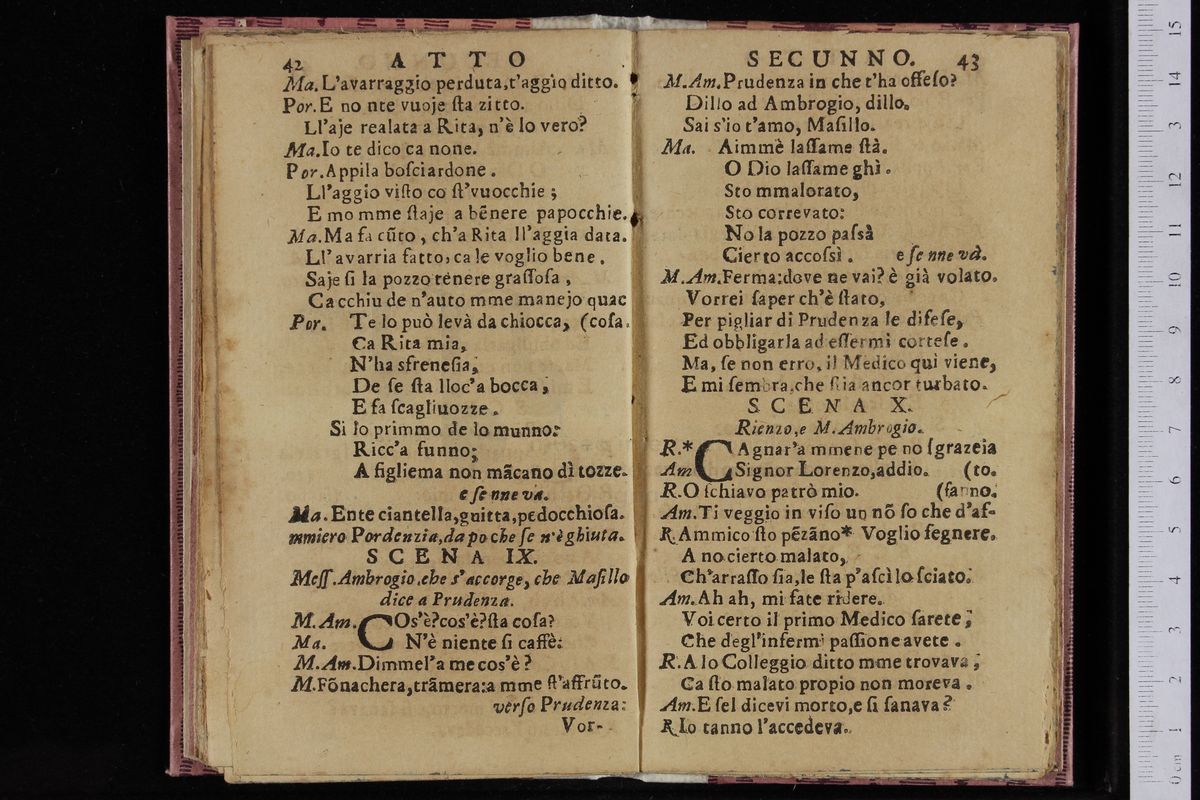 42 ATTO
Ma. L'avarraggio perduta, t'aggio ditto.
Por. E no nte vuoje ſta zitto.
Ll'aje realata a Rita, n'è lo vero?
Ma. Io te dico ca none.
Por. Appila boſciardone.
Ll'aggio viſto co ſt'vuocchie;
E mo mme ſtaje a bēnere papocchie.
Ma. Ma fa cūto, ch'a Rita ll'aggia data.
Ll'avarria fatto, ca le voglio bene.
Saje ſi la pozzo tenere graſſoſa,
Ca cchiu de n'auto mme manejo quac
Por. Te lo può levà da chiocca, (coſa.
Ca Rita mia,
N'ha sfreneſia,
De ſe ſta lloc'a bocca,
E fa ſcagliuozze.
Si lo primmo de lo munno:
Ricc'a funno;
A figliema non mācano dì tozze.
e ſe nne va.
Ma. Ente ciantella, guitta, pedocchioſa.
mmiero Pordenzia, da po che ſe n'è ghiuta.
SCENA IX.
Meſſ. Ambrogio, che s'accorge, che Maſillo
dice a Prudenza.
M. Am. COs'è? cos'è? ſta coſa?
Ma. N'è niente ſi caffè:
M. Am. Dimmel'a me cos'è?
M. Fōnachera, trāmera: a mme ſt'affrūto.
verſo Prudenza:
Vor-
SECUNNO. 43
M. Am. Prudenza in che t'ha offeſo?
Dillo ad Ambrogio, dillo.
Sai s'io t'amo, Maſillo.
Ma. Aimmè laſſame ſtà.
O Dio laſſame ghì.
Sto mmalorato,
Sto correvato:
No la pozzo paſsà
Cierto accoſsì. e ſe nne và.
M. Am. Ferma: dove ne vai? è già volato.
Vorrei ſaper ch'è ſtato,
Per pigliar di Prudenza le difeſe,
Ed obbligarla ad eſſermi corteſe.
Ma, ſe non erro, il Medico qui viene,
E mi ſembra, che ſtia ancor turbato.
SCENA X.
Rienzo, e M. Ambrogio.
R.* CAgnar'a mmene pe no ſgrazeia
Am Signor Lorenzo, addio. (to.
R. O ſchiavo patrò mio. (fanno.
Am. Ti veggio in viſo un nō ſo che d'af-
R. Ammico ſto pēzāno* Voglio fegnere.
A no cierto malato,
Ch'arraſſo ſia, le ſta p'aſcì lo ſciato.
Am. Ah ah, mi fate ridere.
Voi certo il primo Medico ſarete;
Che degl'infermi paſſione avete.
R. A lo Colleggio ditto mme trovava;
Ca ſto malato propio non moreva.
Am. E ſel dicevi morto, e ſi ſanava?
R. Io tanno l'accedeva.